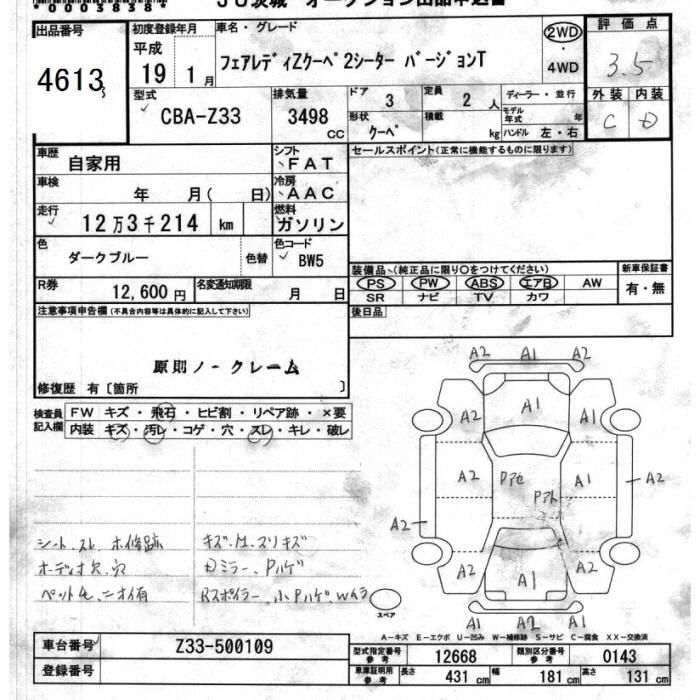 00058380
JU茨城 オークション出品申込書
出品番号 初度登録年月 車名・グレード 評価点
4613 平成 19 1月 フェアレディZクーペ2シーター バージョンT 2WD・4WD 3.5
型式 排気量 ドア 定員 ディーラー・並行 外装 内装
CBA-Z33 3498 CC 3 2人 モデル年式 年 C D
形状 クーペ 積載 kg ハンドル 左・右
車歴 自家用 シフト FAT セールスポイント(正常に機能するものに限ります)
車検 年 月( 日) 冷房 AAC
走行 12万3千214 km 燃料 ガソリン
色 ダークブルー 色替 色コード BW5
装備品(純正品に限り○をつけてください) 新車保証書
R券 12,600円 名変通知期限 月 日
PS PW ABS エアB AW 有・無
SR ナビ TV カワ
注意事項申告欄(不具合内容等は具体的に記入して下さい) 後日品
原則ノークレーム
修復歴 有〔箇所 〕
検査員記入欄 FW キズ・飛石・ヒビ割・リペア跡・×要
内装 キズ・汚レ・コゲ・穴・スレ・キレ・破レ
A2 A1 A2
A2 A1 A1
A2 Pアセ A1 A2
Pアト
A2
A2 A1 A2
A1 A2 A1
シート、スレ ホ修跡 キズ、
オーディオ欠、穴 Dミラー、Pハゲ
ペット毛、ニオイ有 Rスポイラー、小Pハゲ、Wムラ
スペア
A-キズ E-エクボ U-凹み W-補修跡 S-サビ C-腐食 XX-交換済
車台番号 Z33-500109 型式指定番号 参考 12668 類別区分番号 参考 0143
登録番号 車庫証明用 参考 長さ 431cm 幅 181cm 高さ 131cm